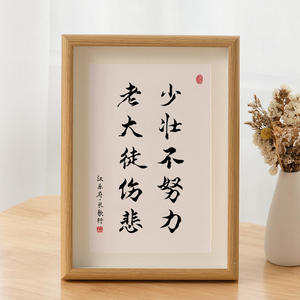 少壮不努力
老大徒伤悲
汉乐府·长歌行